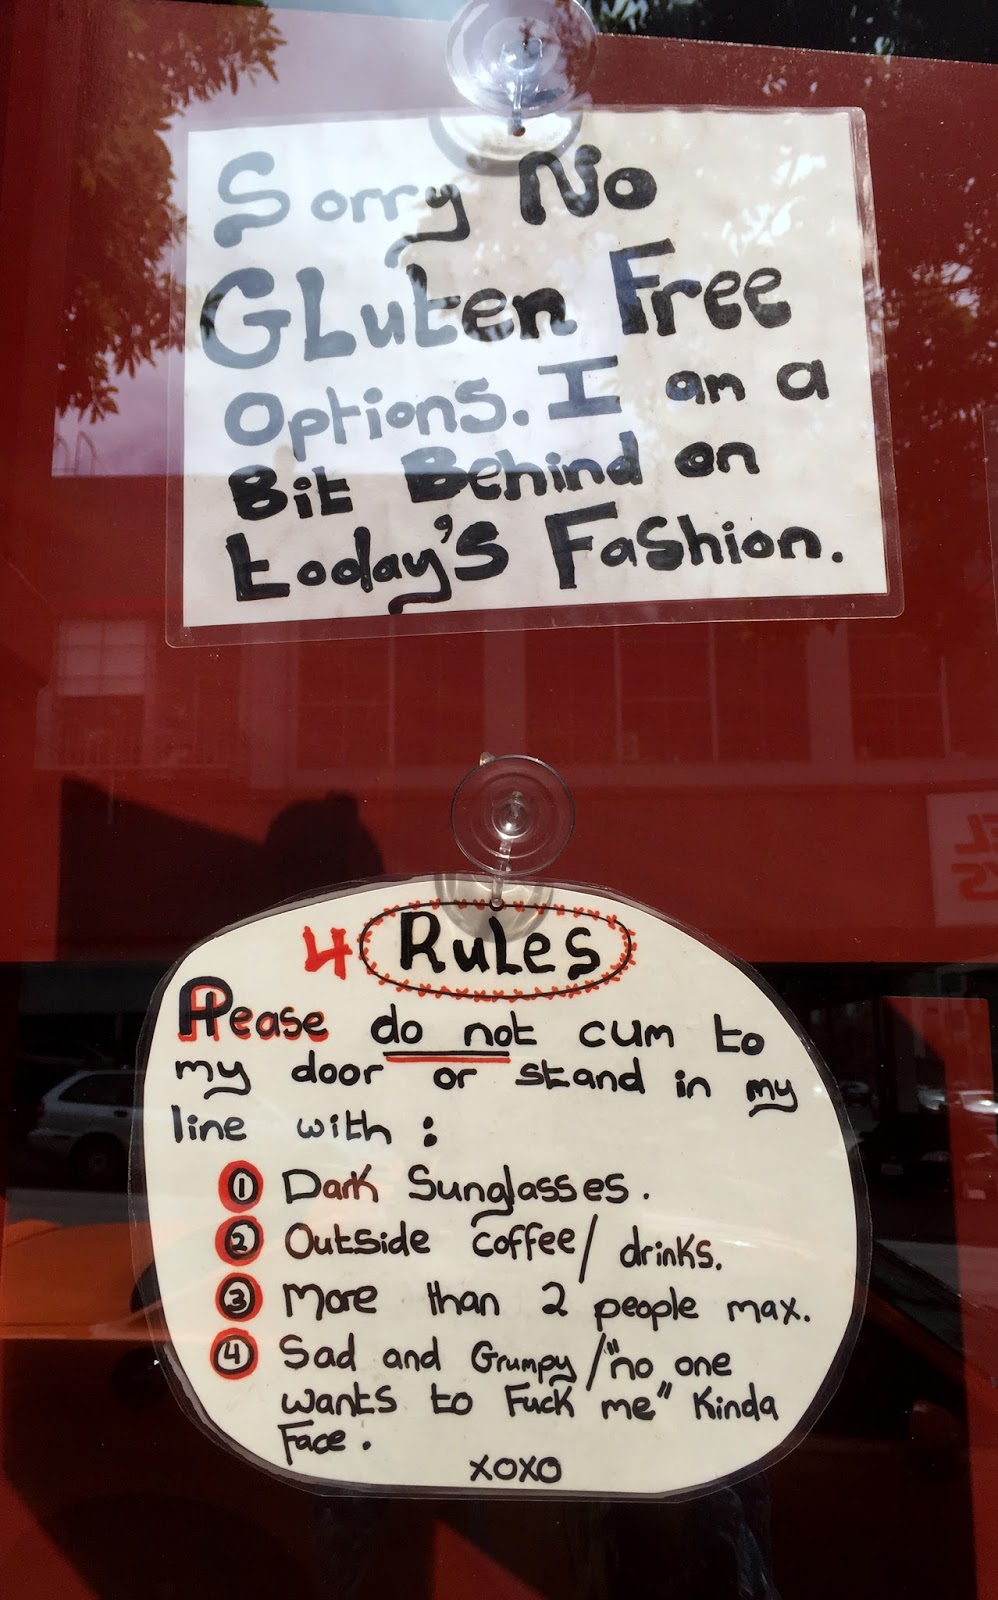 Sorry No
Gluten Free
Options. I am a
Bit Behind on
today's Fashion.
4 Rules
Please do not cum to
my door or stand in my
line with :
1 Dark Sunglasses.
2 Outside coffee/ drinks.
3 More than 2 people max.
4 Sad and Grumpy/"no one
wants to Fuck me" Kinda
Face.
XOXO